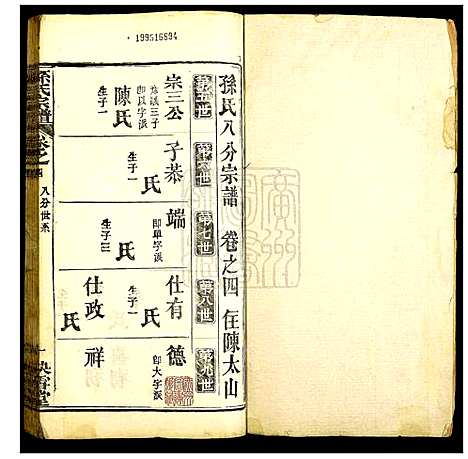 199516894
孫氏八分宗譜 卷之四 住陳太山
第五世
第六世
第七世
第八世
第九世
宗三公
彥議三子
即以字派
陳氏
生子一
子恭
氏
生子一
端
即單字派
氏
生子三
仕有
氏
生子一
仕政
氏
德
即大字派
祥
孫氏宗譜 卷之四 八分世系
映雪堂